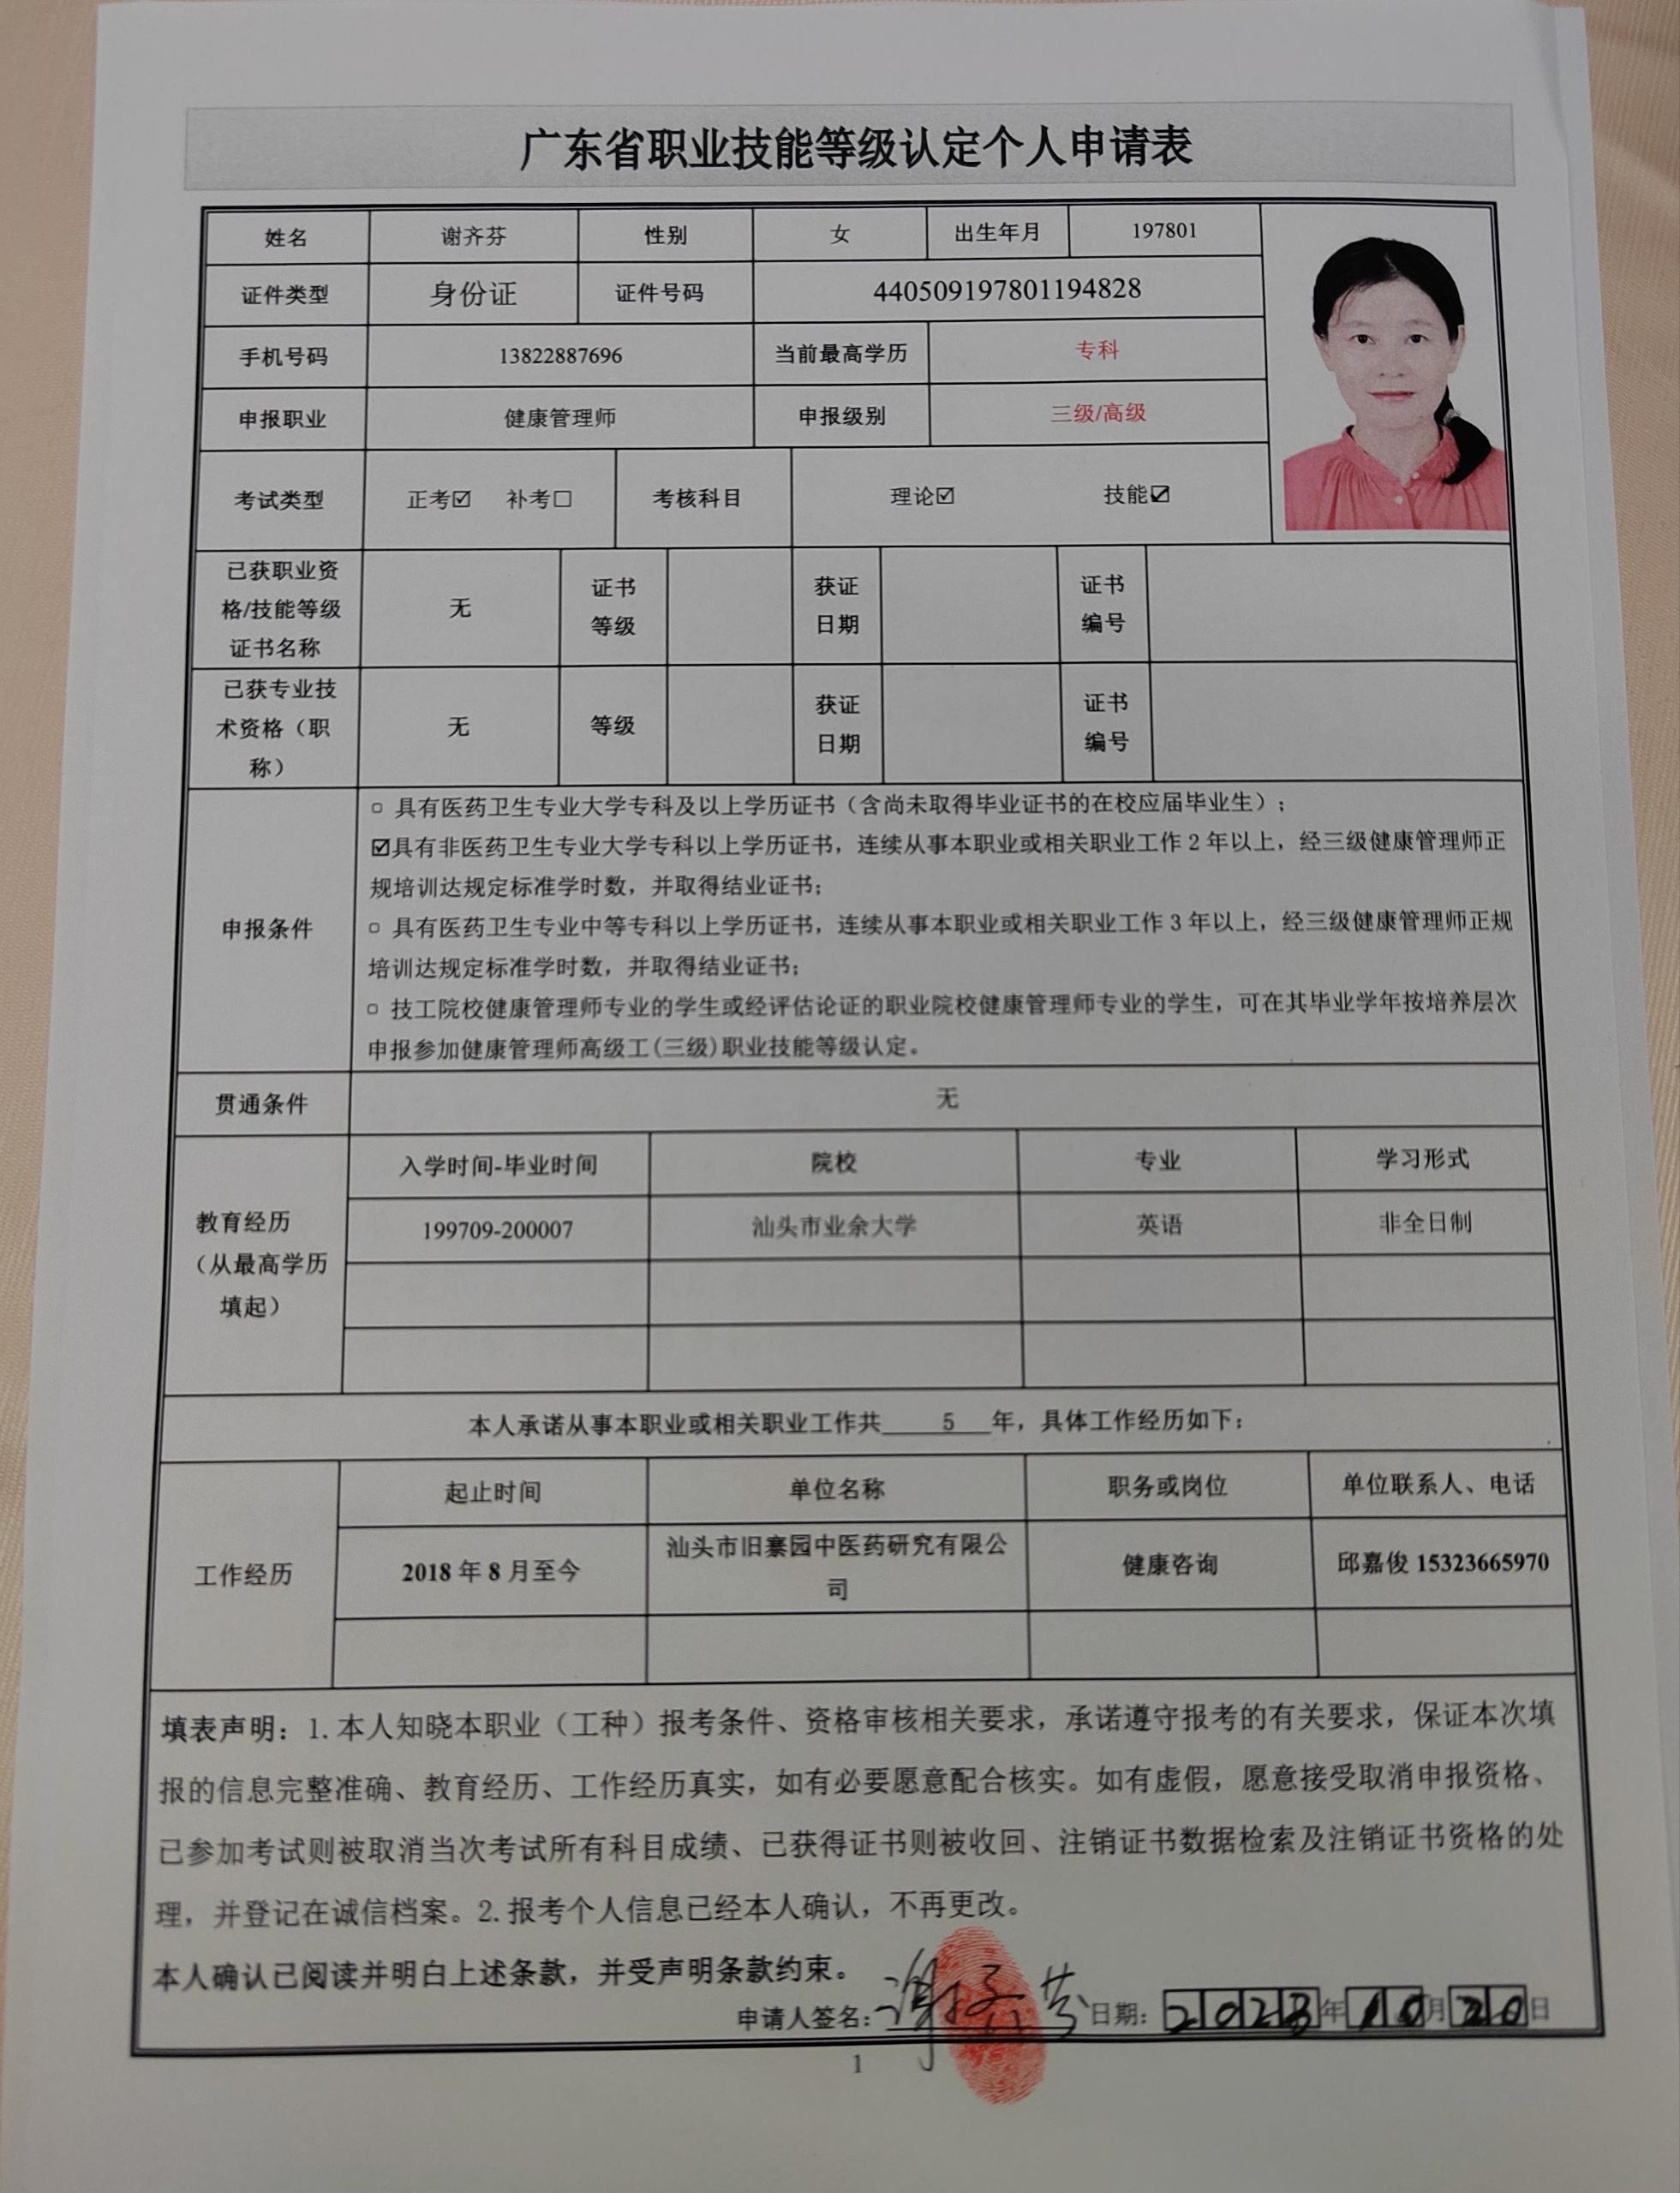 广东省职业技能等级认定个人申请表
姓名 谢齐芬 性别 女 出生年月 197801
证件类型 身份证 证件号码 440509197801194828
手机号码 13822887696 当前最高学历 专科
申报职业 健康管理师 申报级别 三级/高级
考试类型 正考☑ 补考☐ 考核科目 理论☑ 技能☑
已获职业资
格/技能等级
证书名称
无
证书
等级
获证
日期
证书
编号
已获专业技
术资格（职
称）
无
等级
获证
日期
证书
编号
申报条件
□ 具有医药卫生专业大学专科及以上学历证书（含尚未取得毕业证书的在校应届毕业生）；
☑具有非医药卫生专业大学专科以上学历证书，连续从事本职业或相关职业工作 2 年以上，经三级健康管理师正
规培训达规定标准学时数，并取得结业证书；
□ 具有医药卫生专业中等专科以上学历证书，连续从事本职业或相关职业工作 3 年以上，经三级健康管理师正规
培训达规定标准学时数，并取得结业证书；
□ 技工院校健康管理师专业的学生或经评估论证的职业院校健康管理师专业的学生，可在其毕业学年按培养层次
申报参加健康管理师高级工(三级)职业技能等级认定。
贯通条件 无
教育经历
（从最高学历
填起）
入学时间-毕业时间 院校 专业 学习形式
199709-200007 汕头市业余大学 英语 非全日制
本人承诺从事本职业或相关职业工作共 5 年，具体工作经历如下：
工作经历
起止时间 单位名称 职务或岗位 单位联系人、电话
2018 年 8 月至今
汕头市旧寨园中医药研究有限公
司
健康咨询
邱嘉俊 15323665970
填表声明：1. 本人知晓本职业（工种）报考条件、资格审核相关要求，承诺遵守报考的有关要求，保证本次填
报的信息完整准确、教育经历、工作经历真实，如有必要愿意配合核实。如有虚假，愿意接受取消申报资格、
已参加考试则被取消当次考试所有科目成绩、已获得证书则被收回、注销证书数据检索及注销证书资格的处
理，并登记在诚信档案。2. 报考个人信息已经本人确认，不再更改。
本人确认已阅读并明白上述条款，并受声明条款约束。
申请人签名：谢齐芬 日期：2023年10月20日
1